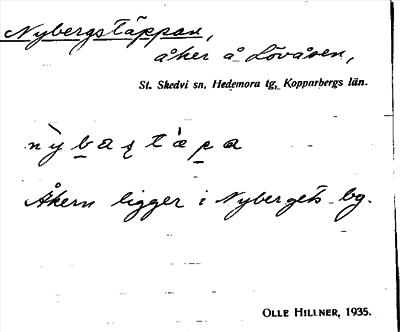 Nybergstäppan,
åker å Lövåsen,
St. Skedvi sn, Hedemora tg, Kopparbergs län.
Åkern ligger i Nybergets bg.
OLLE HILLNER, 1935.